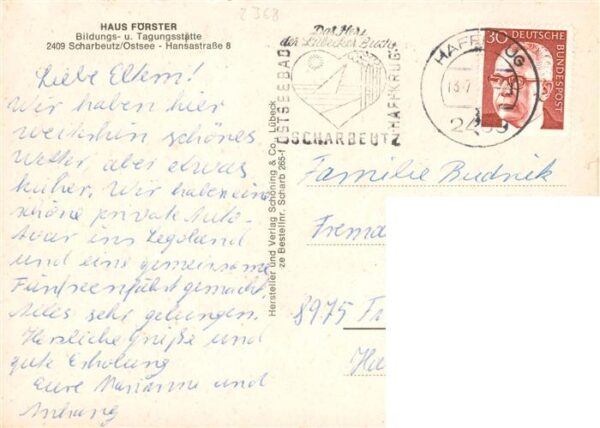 2368
HAUS FÖRSTER
Bildungs- u. Tagungsstätte
2409 Scharbeutz/Ostsee - Hansastraße 8
Liebe Eltern!
Wir haben hier
weiterhin schönes
Wetter, aber etwas
kühler. Wir haben eine
schöne private Auto-
tour ins Legoland
und eine gemeinsame
Fünfseenfahrt gemacht.
Alles sehr gelungen.
Herzliche Grüße und
gute Erholung
Eure Marianne und
Hersteller und Verlag Schöning & Co., Lübeck
ze Bestellnr. Scharb 265-1
Das Herz
der Lübecker Bucht
OSTSEEBAD
SCHARBEUTZ
HAFFKRUG
HAFFKRUG
2409
30 DEUTSCHE
BUNDESPOST
Familie Budnick
8975